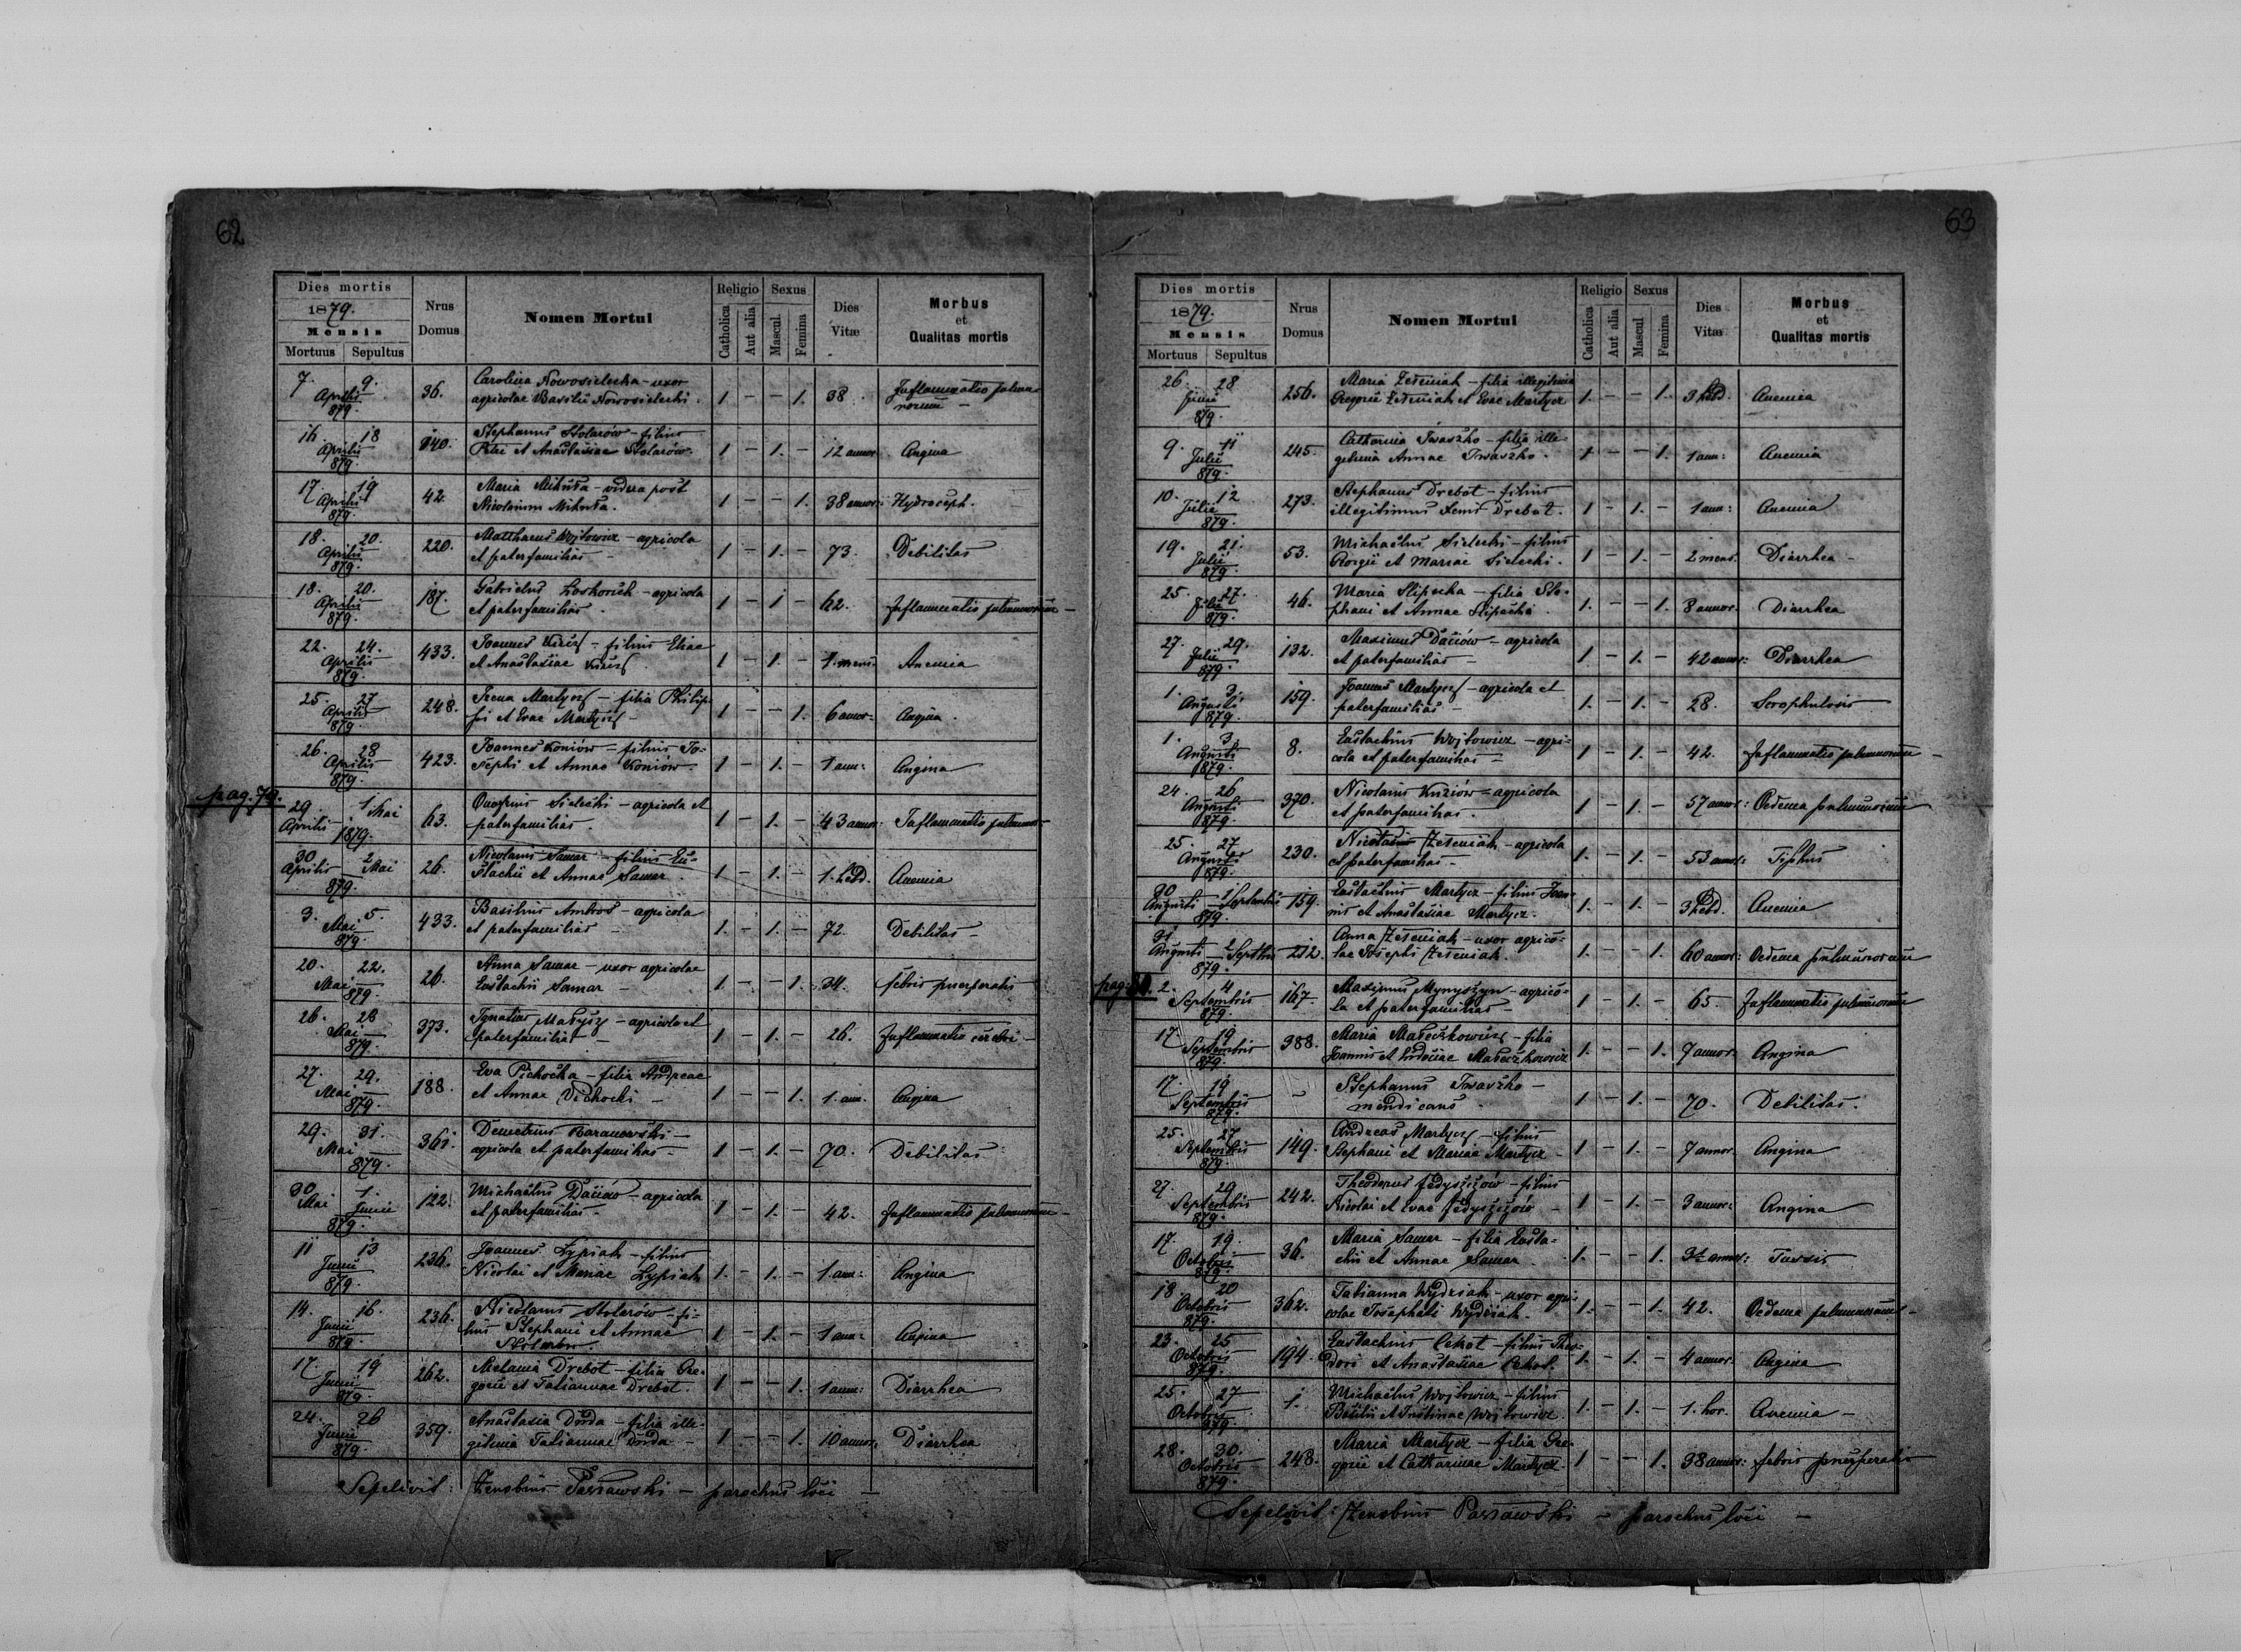 62
Dies mortis
1879.
Mensis
Mortuus Sepultus
Nrus
Domus
Nomen Mortui
Religio Sexus
Catholica Aut alia Mascul. Femina
Dies
Vitæ
Morbus
et
Qualitas mortis
7. 9. Aprilis 879. 36. Carolina Nowosielecka – uxor 1 – – 1. 38 Inflammatio pulmo-
agricolae Basilii Nowosielecki. norum –
16 18 Aprilis 879. 140. Stephanus Stolarów – filius 1 – 1. – 12 annor. Angina
Petri et Anastasiae Stolarów.
17. 19 Aprilis 879. 42. Maria Mikuła – vidua post 1 – – 1. 38 annor: Hydroceph.
Nicolaum Mikuła.
18. 20. Aprilis 879. 220. Matthaeus Wojtowicz – agricola 1 – 1. – 73. Debilitas
et paterfamilias –
18. 20. Aprilis 879. 187. Gabrielus – agricola 1 – 1 – 62. Inflammatio pulmonum –
et paterfamilias.
22. 24. Aprilis 879. 433. Joannes – filius Eliae 1 – 1. – 1. mens. Anemia
et Anastasiae
25. 27 Aprilis 879. 248. Irena Martycz – filia Philip- 1 – – 1. 6 annor: Angina.
pi et Evae Martycz –
26. 28 Aprilis 879. 423. Joannes Koniów – filius Jo- 1 – 1. – 1 ann: Angina
sephi et Annae Koniów.
pag. 79.
29 Aprilis 1 Mai 1879. 63. Onuprius Sielecki – agricola et 1 – 1. – 43 annor: Inflammatio pulmonum
paterfamilias.
30 Aprilis 2 Mai 879. 26. Nicolaus Samar – filius Eu- 1 – 1. – 1. hebd. Anemia
stachii et Annae Samar.
3. 5. Mai 879. 433. Basilius Ambros – agricola 1. – 1. – 72. Debilitas –
et paterfamilias –
20. 22. Mai 879. 26. Anna Samar – uxor agricolae 1. – – 1. 34. febris puerperalis
Eustachii Samar –
26. 28 Mai 879. 373. Ignatius Małysz – agricola et 1 – 1. – 26. Inflammatio cerebri –
paterfamilias –
27. 29. Mai 879. 188. Eva Pichocka – filia Andreae 1 – – 1. 1. ann. Angina
et Annae Pichocki –
29. 31. Mai 879. 361. Demetrius Baranowski – 1 – 1. – 70. Debilitas
agricola et paterfamilias –
30 Mai 1. Junii 879. 122. Michaëlus Daców – agricola 1 – 1. – 42. Inflammatio pulmonum –
et paterfamilias.
11 13 Junii 879. 236. Joannes Łysiak – filius 1. – 1. – 1. ann: Angina
Nicolai et Mariae Łysiak
14. 16. Junii 879. 236. Nicolaus Stolarów – fi- 1 – 1. – 1 ann: Angina
lius Stephani et Annae
Stolarów.
17. 19 Junii 879. 262. Melania Drebot – filia Gre- 1 – – 1. 1 ann: Diarrhea
gorii et Tatiannae Drebot.
24. 26 Junii 879. 359. Anastasia Dorda – filia ille- 1. – – 1. 10 annor. Diarrhea
gitima Tatiannae Dorda –
Sepelivit: Zenobius – parochus loci –
63
Dies mortis
1879.
Mensis
Mortuus Sepultus
Nrus
Domus
Nomen Mortui
Religio Sexus
Catholica Aut alia Mascul. Femina
Dies
Vitæ
Morbus
et
Qualitas mortis
26. 28 Junii 879. 256. Maria Zełeniak – filia illegitima 1. – – 1. 3 hebd. Anemia
Gregorii Zełeniak et Evae Martycz
9. 11 Julii 879. 245. Catharina Iwaszko – filia ille- 1 – – 1. 1 ann: Anemia
gitima Annae Iwaszko.
10. 12 Julii 879. 273. Stephanus Drebot – filius 1 – 1. – 1 ann: Anemia
illegitimus Drebot.
19. 21. Julii 879. 53. Michaëlus Sielecki – filius 1 – 1. – 2 mens. Diarrhea –
Georgii et Mariae Sielecki.
25. 27. Julii 879. 46. Maria Slipecka – filia Ste- 1. – – 1. 8 annor. Diarrhea
phani et Annae Slipecki.
27. 29. Julii 879. 132. Maximus Daców – agricola 1 – 1. – 42 annor: Diarrhea
et paterfamilias –
1. 3. Augusti 879. 159. Joannes Martycz – agricola et 1. – 1. – 28. Scrophulosis
paterfamilias –
1. 3. Augusti 879. 8. Eustachius Wojtowicz – agri- 1 – 1. – 42. Inflammatio pulmonum –
cola et paterfamilias –
24. 26 Augusti 879. 370. Nicolaus – agricola 1 – 1. – 57 annor: Oedema pulmonum
et paterfamilias.
25. 27 Augusti 879. 230. Nicolaus Zełeniak – agricola 1. – 1. – 53 annor: Tiphus
et paterfamilias –
30 Augusti 1 Septembris 879. 159. Eustachius Martycz – filius Joan- 1. – 1. – 3 hebd. Anemia
nis et Anastasiae Martycz.
31 Augusti 2 Septbris 879. 212. Anna Zełeniak – uxor agrico- 1. – – 1. 60 annor: Oedema pulmonorum
lae Josephi Zełeniak.
pag.
2. 4 Septembris 879. 167. Maximus Mynyszyn – agrico- 1 – 1. – 65 – Inflammatio pulmonum
la et paterfamilias –
17 19 Septembris 879. 388. Maria Małeczkowicz – filia 1. – – 1. 7 annor. Angina
Joannis et Małeczkowicz
17. 19 Septembris 879. – Stephanus Iwaszko – 1 – 1. – 70. Debilitas.
mendicans.
25. 27 Septembris 879. 149. Andreas Martycz – filius 1 – 1. – 7 annor. Angina
Stephani et Mariae Martycz –
27. 29 Septembris 879. 242. Theodorus Fedyszczów – filius 1 – 1. – 3 annor: Angina
Nicolai et Evae Fedyszczów –
17. 19. Octobris 879. 36. Maria Samar – filia Eusta- 1. – – 1. annor: Tussis
chii et Annae Samar.
18 20 Octobris 879. 362. Tatianna Wydziak – uxor agri- 1. – – 1. 42. Oedema pulmonum –
colae Josephati Wydziak.
23. 25 Octobris 879. 194. Eustachius Cehot – filius Theo- 1. – 1. – 4 annor. Angina
dori et Anastasiae Cehot.
25. 27 Octobris 879. 1. Michaëlus Wojtowicz – filius 1. – 1. – 1. hor. Anemia –
Basilii et Justinae Wojtowicz.
28. 30. Octobris 879. 248. Maria Martycz – filia Gre- 1 – – 1. 38 annor: febris puerperalis
gorii et Catharinae Martycz.
Sepelivit: Zenobius – parochus loci –